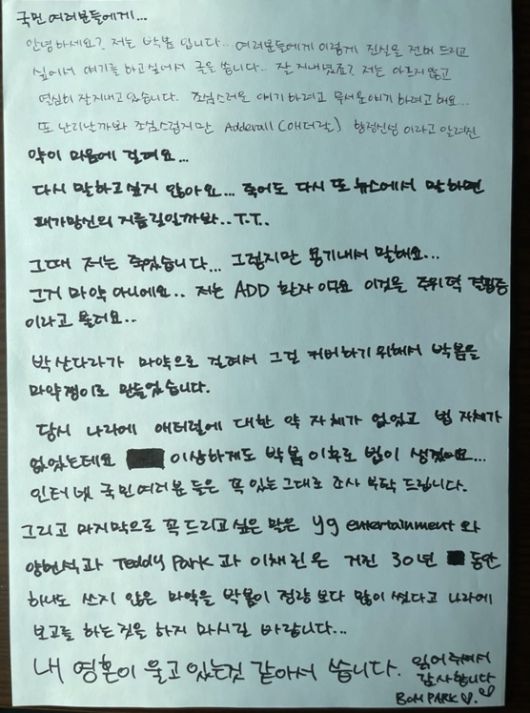 국민 여러분들에게...
안녕하세요? 저는 박봄 입니다... 여러분들에게 이렇게 진실을 전해 드리고
싶어서 얘기를 하고싶어서 글을 씁니다.. 잘 지내셨죠? 저는 아프지않고
열심히 잘지내고 있습니다. 조심스러운 얘기 하려고 무서운얘기 하려고 해요...
또 난리날까봐 조심스럽지만 Adderall (애더럴) 향정신성 이라고 알려진
약이 마음에 걸려요...
다시 말하고싶지 않아요... 죽어도 다시 또 뉴스에서 말하면
패가망신의 지름길일까봐.. T.T..
그때 저는 죽었습니다... 그렇지만 용기내서 말해요...
그거 마약 아니에요.. 저는 ADD 환자 이고요 이것을 주위력 결핍증
이라고 불러요..
박산다라가 마약으로 걸려서 그걸 커버하기 위해서 박봄을
마약쟁이로 만들었습니다.
당시 나라에 애더럴에 대한 약 자체가 없었고 법 자체가
없었는데요 이상하게도 박봄 이후로 법이 생겼어요...
인터넷 국민여러분 들은 꼭 있는그대로 조사 부탁 드립니다.
그리고 마지막으로 꼭 드리고 싶은 말은 yg entertainment 와
양현석과 Teddy Park 과 이채린은 거진 30년 동안
하나도 쓰지 않은 마약을 박봄이 정량 보다 많이 썼다고 나라에
보고를 하는것을 하지 마시길 바랍니다...
내 영혼이 울고 있는것 같아서 씁니다. 읽어주셔서
감사합니다
BOM PARK ♡. ♡